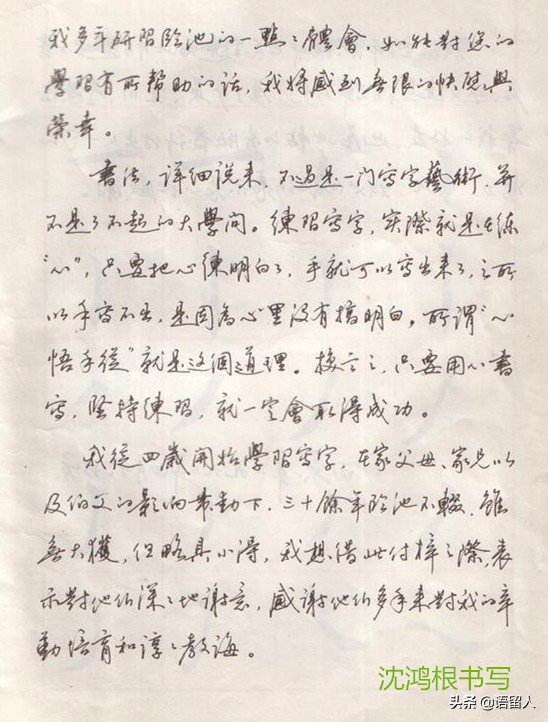 我多年研習臨池的一點點體會，如能對您的
學習有所帮助的话，我將感到無限的快慰與
榮幸。
書法，详细说来，不过是一门寫字藝術，并
不是了不起的大學问。練習寫字，实際就是在练
“心”，只要把心練明白了，手就可以寫出来了，之所
以手寫不出，是因為心里没有搞明白，所谓“心
悟手從”就是这個道理。换言之，只要用心書
寫，坚持練習，就一定會取得成功。
我從四歲開始學習寫字，在家父母、家兄以
及伯父的影响带動下，三十餘年臨池不輟，雖
無大獲，但略具小得，我想借此付梓之際，表
示對他们深深地谢意，感谢他们多年来對我的辛
勤培育和諄諄教诲。
沈鸿根书写
头条 @语留人